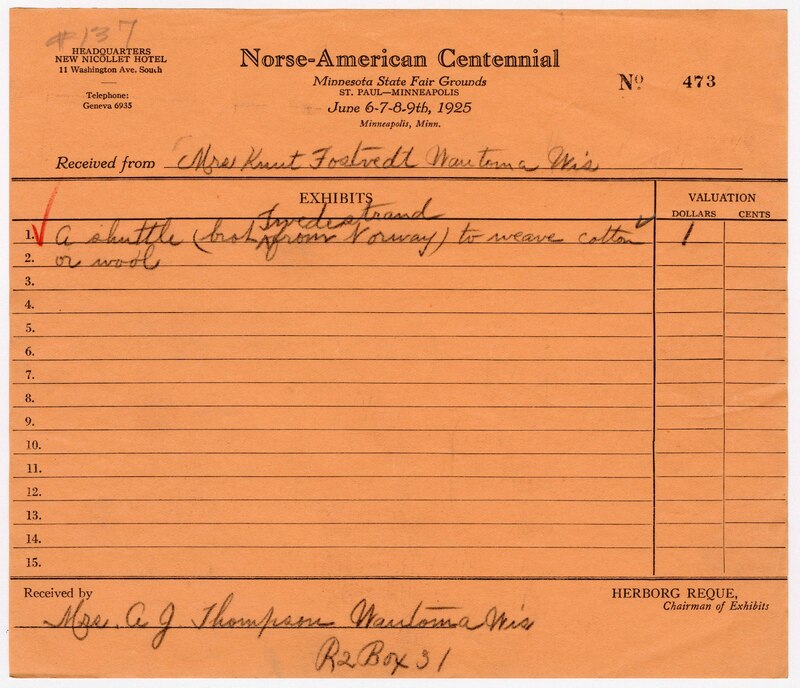 #137
HEADQUARTERS
NEW NICOLLET HOTEL
11 Washington Ave. South
Telephone:
Geneva 6935
Norse-American Centennial
Minnesota State Fair Grounds
ST. PAUL—MINNEAPOLIS
June 6-7-8-9th, 1925
Minneapolis, Minn.
Nº 473
Received from Mrs Knut Fostvedt Wautoma Wis
EXHIBITS
VALUATION
DOLLARS CENTS
Tvedestrand
1. A shuttle (brot from Norway) to weave cotton 1
2. or wool
3.
4.
5.
6.
7.
8.
9.
10.
11.
12.
13.
14.
15.
Received by
HERBORG REQUE,
Chairman of Exhibits
Mrs. A J Thompson Wautoma Wis
R2 Box 31